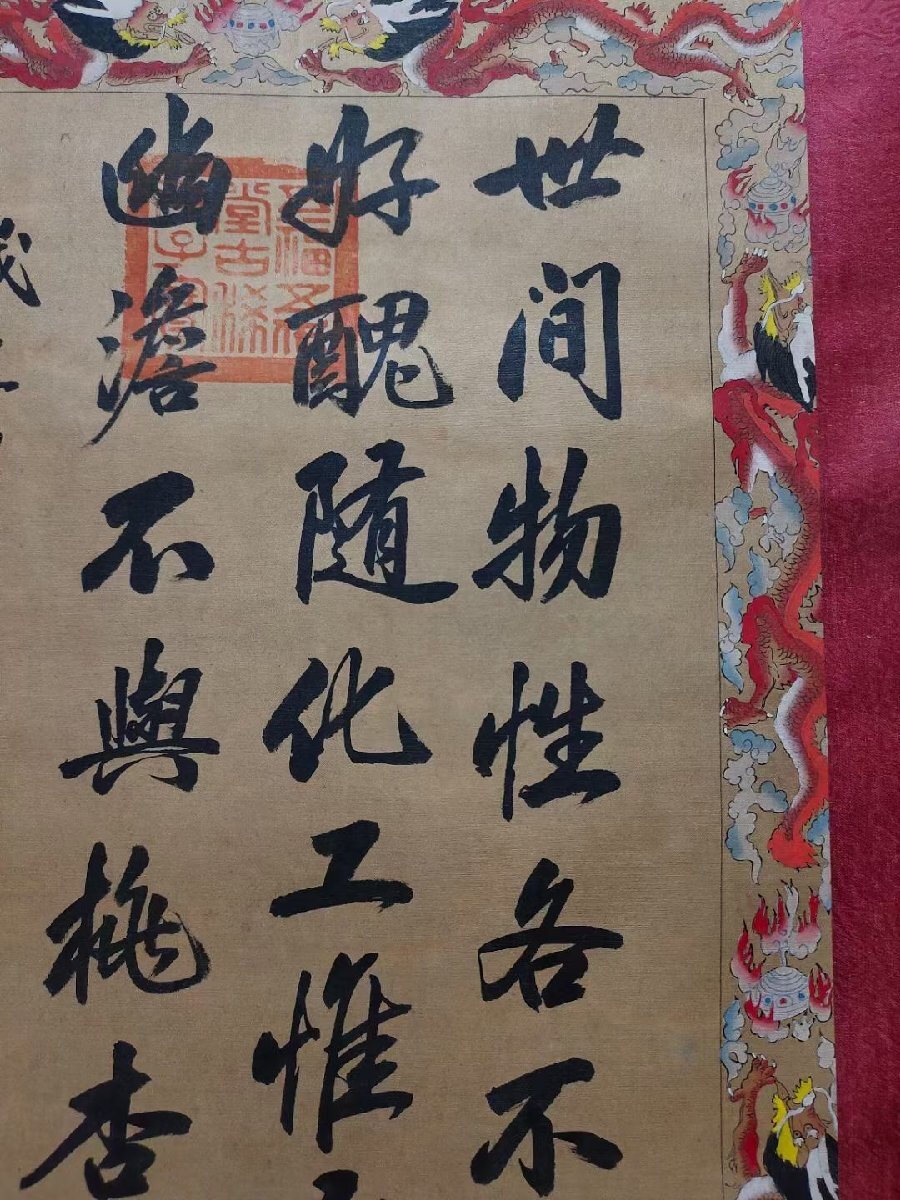 世间物性各不
好醜随化工惟
幽澹不與桃杏